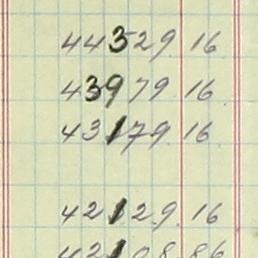 44329 16
43979 16
43179 16
42129 16
42108 86